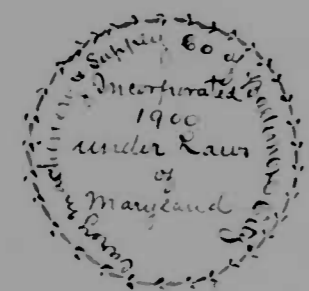 Supply Co of Baltimore City
Incorporated
1900
under Laws
of
Maryland